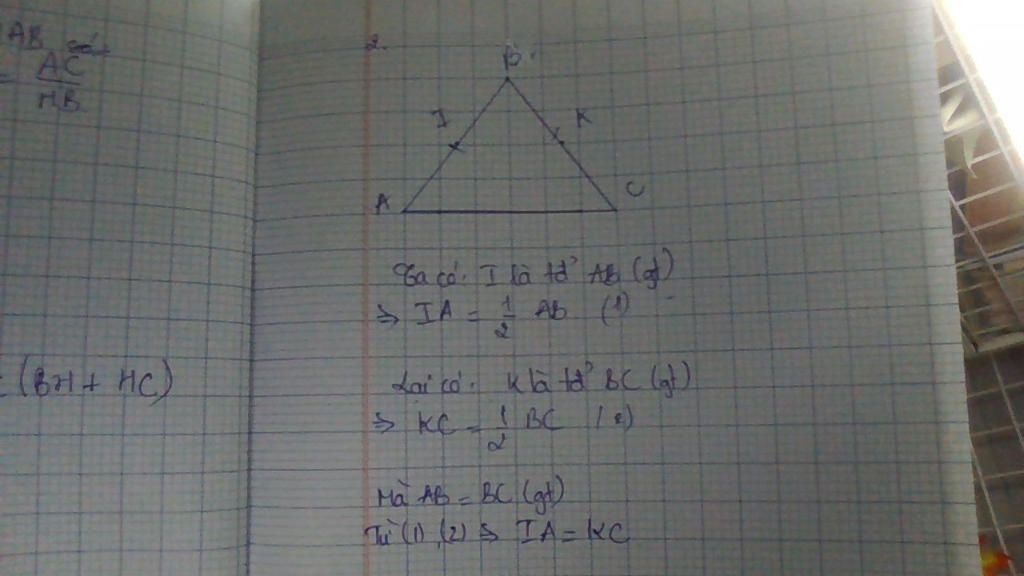 AB
= AC/HB
(BH + HC)
2.
B
I
K
A
C
Ta có: I là tđ' AB (gt)
=> IA = 1/2 AB (1)
Lại có: K là tđ' BC (gt)
=> KC = 1/2 BC (2)
Mà AB = BC (gt)
Từ (1), (2) => IA = KC